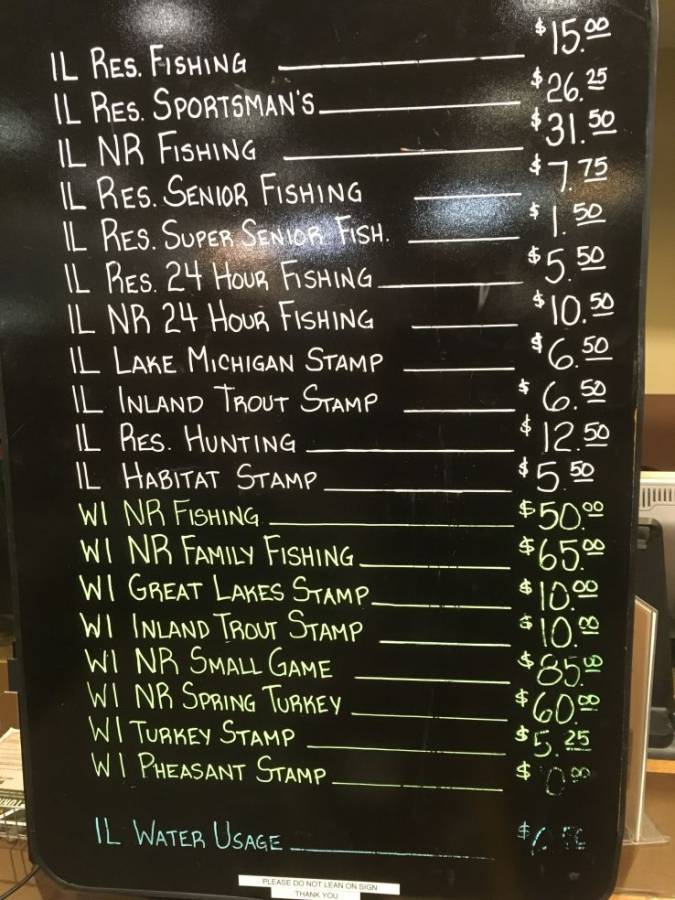 IL RES. FISHING $15.00
IL RES. SPORTSMAN'S $26.25
IL NR FISHING $31.50
IL RES. SENIOR FISHING $7.75
IL RES. SUPER SENIOR FISH. $1.50
IL RES. 24 HOUR FISHING $5.50
IL NR 24 HOUR FISHING $10.50
IL LAKE MICHIGAN STAMP $6.50
IL INLAND TROUT STAMP $6.50
IL RES. HUNTING $12.50
IL HABITAT STAMP $5.50
WI NR FISHING $50.00
WI NR FAMILY FISHING $65.00
WI GREAT LAKES STAMP $10.00
WI INLAND TROUT STAMP $10.00
WI NR SMALL GAME $85.00
WI NR SPRING TURKEY $60.00
WI TURKEY STAMP $5.25
WI PHEASANT STAMP $
IL WATER USAGE $
PLEASE DO NOT LEAN ON SIGN
THANK YOU